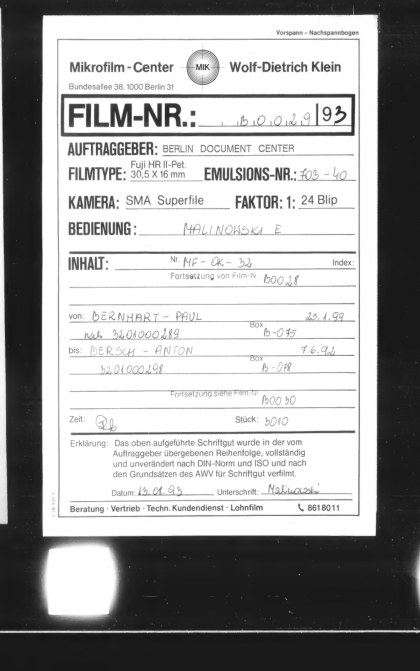 Vorspann – Nachspannbogen
Mikrofilm-Center MIK Wolf-Dietrich Klein
Bundesallee 38, 1000 Berlin 31
FILM-NR.: B0029/93
AUFTRAGGEBER: BERLIN DOCUMENT CENTER
FILMTYPE: Fuji HR II-Pet. 30,5 X 16 mm EMULSIONS-NR.: 703-40
KAMERA: SMA Superfile FAKTOR: 1: 24 Blip
BEDIENUNG: MALINOWSKI E
INHALT: Nr. MF-OK-32 Index:
Fortsetzung von Film-N. B0028
von: BERNHART - PAUL 25.1.99
3201000289 Box B-075
bis: BERSCH - ANTON 7.6.92
3201000298 Box B-078
Fortsetzung siehe Film-N. B0030
Zeit: Stück: 3010
Erklärung: Das oben aufgeführte Schriftgut wurde in der vom
Auftraggeber übergebenen Reihenfolge, vollständig
und unverändert nach DIN-Norm und ISO und nach
den Grundsätzen des AWV für Schriftgut verfilmt.
Datum: 13.01.93 Unterschrift: Malinowski
Beratung · Vertrieb · Techn. Kundendienst · Lohnfilm 8618011